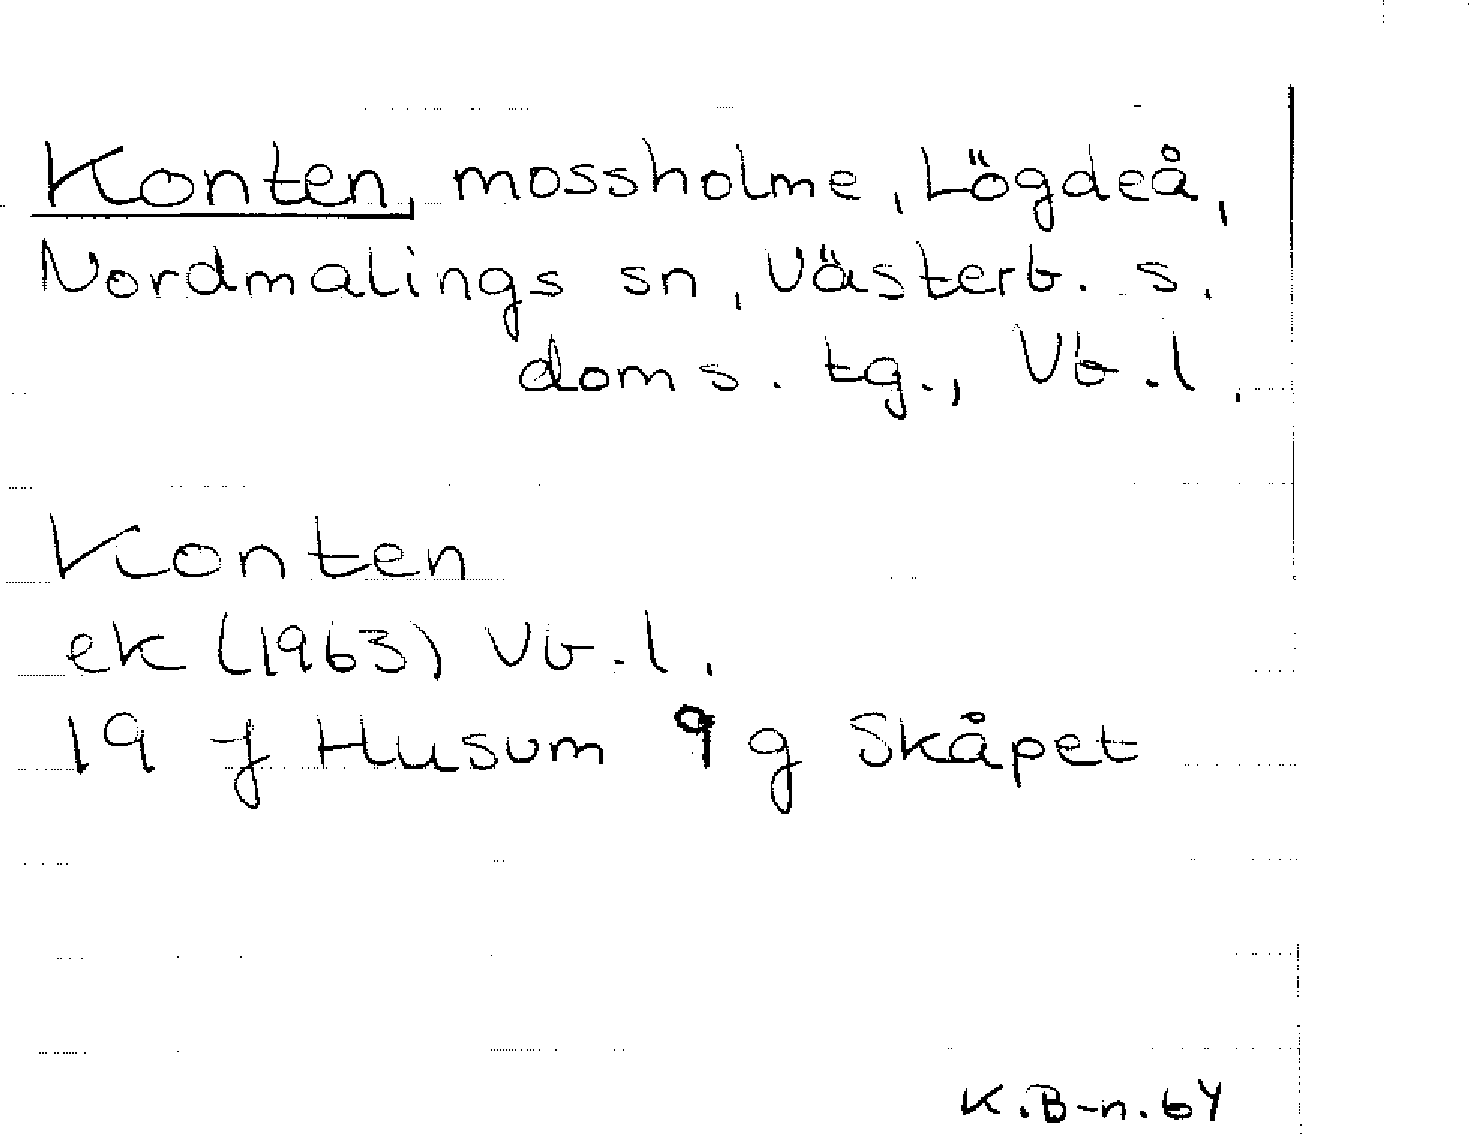 Konten, mossholme, Lögdeå,
Nordmalings sn, Västerb. s.
doms. tg., Vb.l.
Konten
ek (1963) Vb.l.
19 J Husum 9 g Skåpet
K.B-n.64